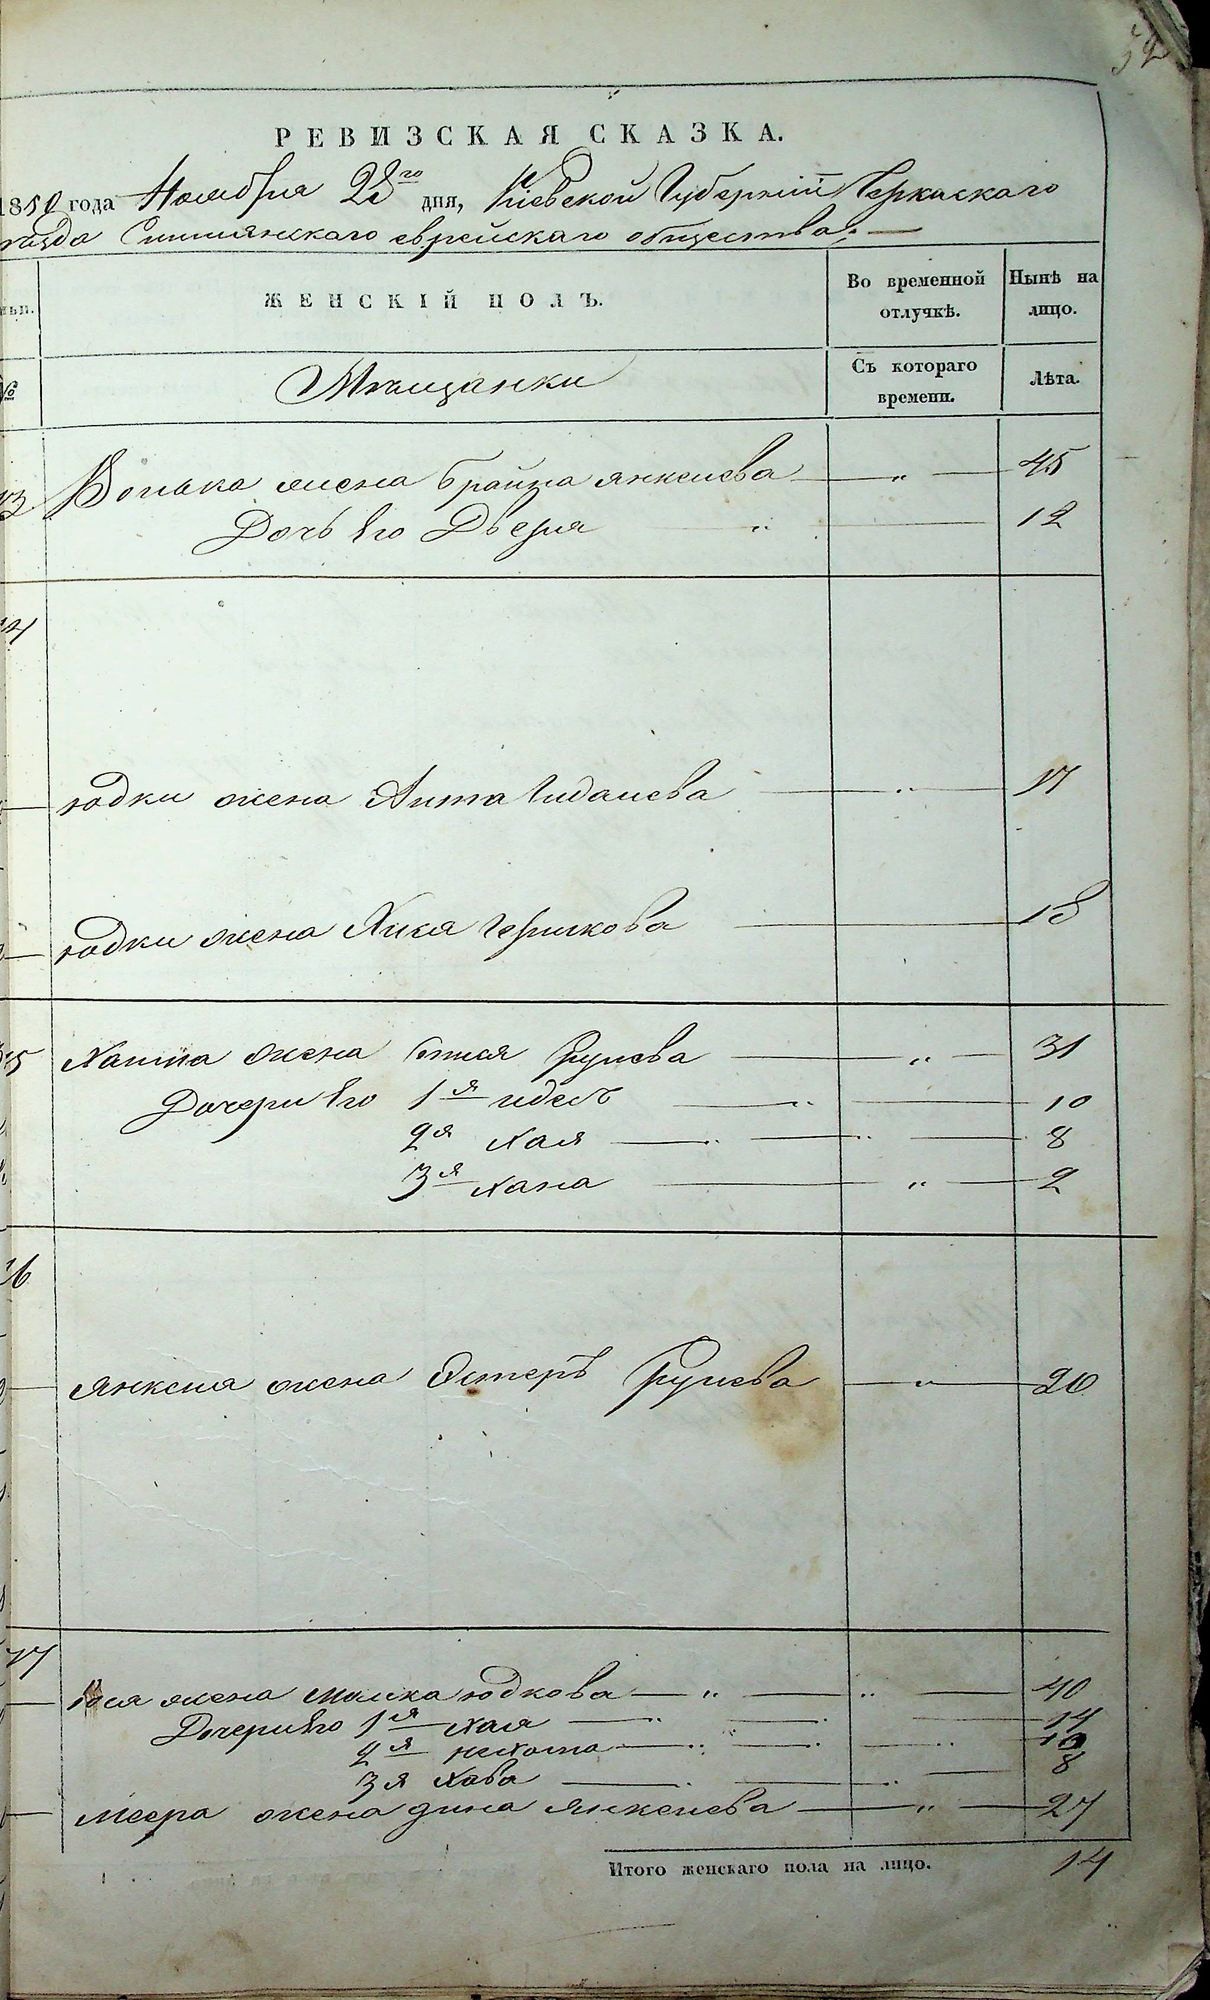 52
РЕВИЗСКАЯ СКАЗКА.
1850 года Ноября 28го дня, Кіевской Губерніи Черкаскаго
уезда Смилянскаго еврейскаго общества.
ЖЕНСКІЙ ПОЛЪ.
Во временной отлучкѣ.
Нынѣ на лицо.
№
Мѣщанки
Съ котораго времени.
Лѣта.
жена Брайна Янкелева — „ — 45
Дочь Его Двейра „ — 12
14
Юдки жена Гиданева — „ — 17
Юдки жена Хися Гершкова — 18
15 жена Рулева — „ — 31
Дочери Его 1я Идесъ — „ — 10
2я Хая — „ — „ — 8
3я Хана — „ — 2
16
Янкеля жена Эстеръ — „ — 20
17
жена Малка Юдкова — „ — „ — 40
Дочери Его 1я Хая — „ — „ — 14
2я Нехама — „ — „ — „
3я Хава — „ — „ — 8
Меера жена Дина Янкелева — „ — 27
Итого женскаго пола на лицо. 14